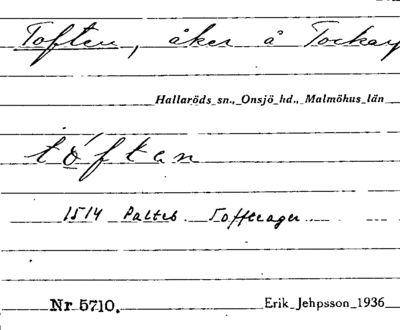 Toften, åker å Tockarp
Hallaröds sn., Onsjö hd., Malmöhus län
tóftan
1514 Palteb. Toffteager
Nr. 5710.
Erik Jehpsson 1936